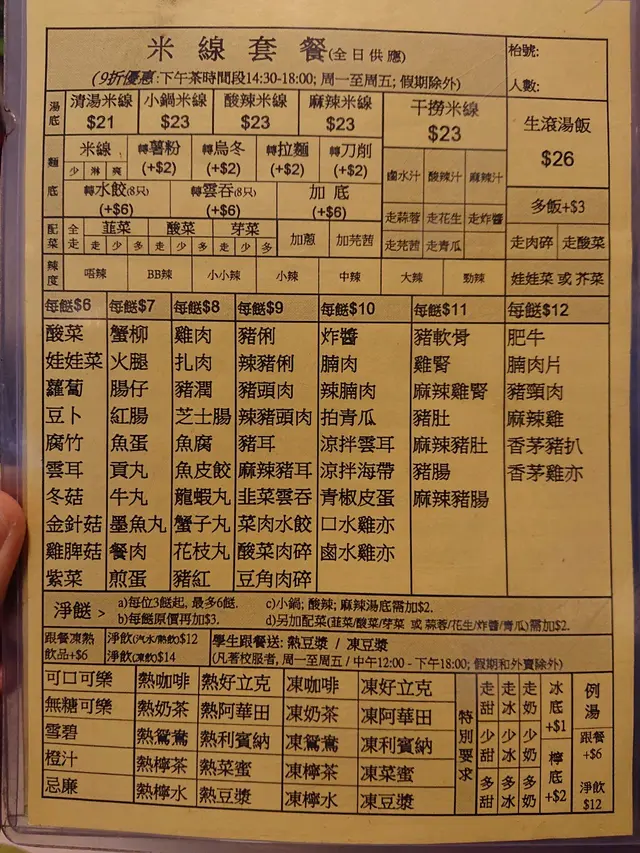 米線套餐(全日供應)
(9折優惠:下午茶時間段14:30-18:00; 周一至周五; 假期除外)
枱號:
人數:
湯底 清湯米線 $21 小鍋米線 $23 酸辣米線 $23 麻辣米線 $23 干撈米線 $23
生滾湯飯 $26
麵底 米線 少 淋 爽 轉薯粉 (+$2) 轉烏冬 (+$2) 轉拉麵 (+$2) 轉刀削 (+$2)
鹵水汁 酸辣汁 麻辣汁
轉水餃(8只) (+$6) 轉雲吞(8只) (+$6) 加底 (+$6)
多飯+$3
走蒜蓉 走花生 走炸醬
走芫茜 走青瓜
走肉碎 走酸菜
配菜 全走 韮菜 走 少 多 酸菜 走 少 多 芽菜 走 少 多 加蔥 加芫茜
辣度 唔辣 BB辣 小小辣 小辣 中辣 大辣 勁辣 娃娃菜 或 芥菜
每餸$6 每餸$7 每餸$8 每餸$9 每餸$10 每餸$11 每餸$12
酸菜 蟹柳 雞肉 豬俐 炸醬 豬軟骨 肥牛
娃娃菜 火腿 扎肉 辣豬俐 腩肉 雞腎 腩肉片
蘿蔔 腸仔 豬潤 豬頭肉 辣腩肉 麻辣雞腎 豬頸肉
豆卜 紅腸 芝士腸 辣豬頭肉 拍青瓜 豬肚 麻辣雞
腐竹 魚蛋 魚腐 豬耳 涼拌雲耳 麻辣豬肚 香茅豬扒
雲耳 貢丸 魚皮餃 麻辣豬耳 涼拌海帶 豬腸 香茅雞亦
冬菇 牛丸 龍蝦丸 韮菜雲吞 青椒皮蛋 麻辣豬腸
金針菇 墨魚丸 蟹子丸 菜肉水餃 口水雞亦
雞脾菇 餐肉 花枝丸 酸菜肉碎 鹵水雞亦
紫菜 煎蛋 豬紅 豆角肉碎
淨餸 > a)每位3餸起, 最多6餸. c)小鍋; 酸辣; 麻辣湯底需加$2.
b)每餸原價再加$3. d)另加配菜(韮菜/酸菜/芽菜 或 蒜蓉/花生/炸醬/青瓜)需加$2.
跟餐凍熱飲品+$6 淨飲(汽水/熱飲)$12 學生跟餐送: 熱豆漿 / 凍豆漿
淨飲(凍飲)$14 (凡著校服者, 周一至周五 / 中午12:00 - 下午18:00; 假期和外賣除外)
可口可樂 熱咖啡 熱好立克 凍咖啡 凍好立克
無糖可樂 熱奶茶 熱阿華田 凍奶茶 凍阿華田
雪碧 熱鴛鴦 熱利賓納 凍鴛鴦 凍利賓納
橙汁 熱檸茶 熱菜蜜 凍檸茶 凍菜蜜
忌廉 熱檸水 熱豆漿 凍檸水 凍豆漿
特別要求
走甜 走冰 走奶
少甜 少冰 少奶
多甜 多冰 多奶
冰底 +$1
檸底 +$2
例湯
跟餐 +$6
淨飲 $12